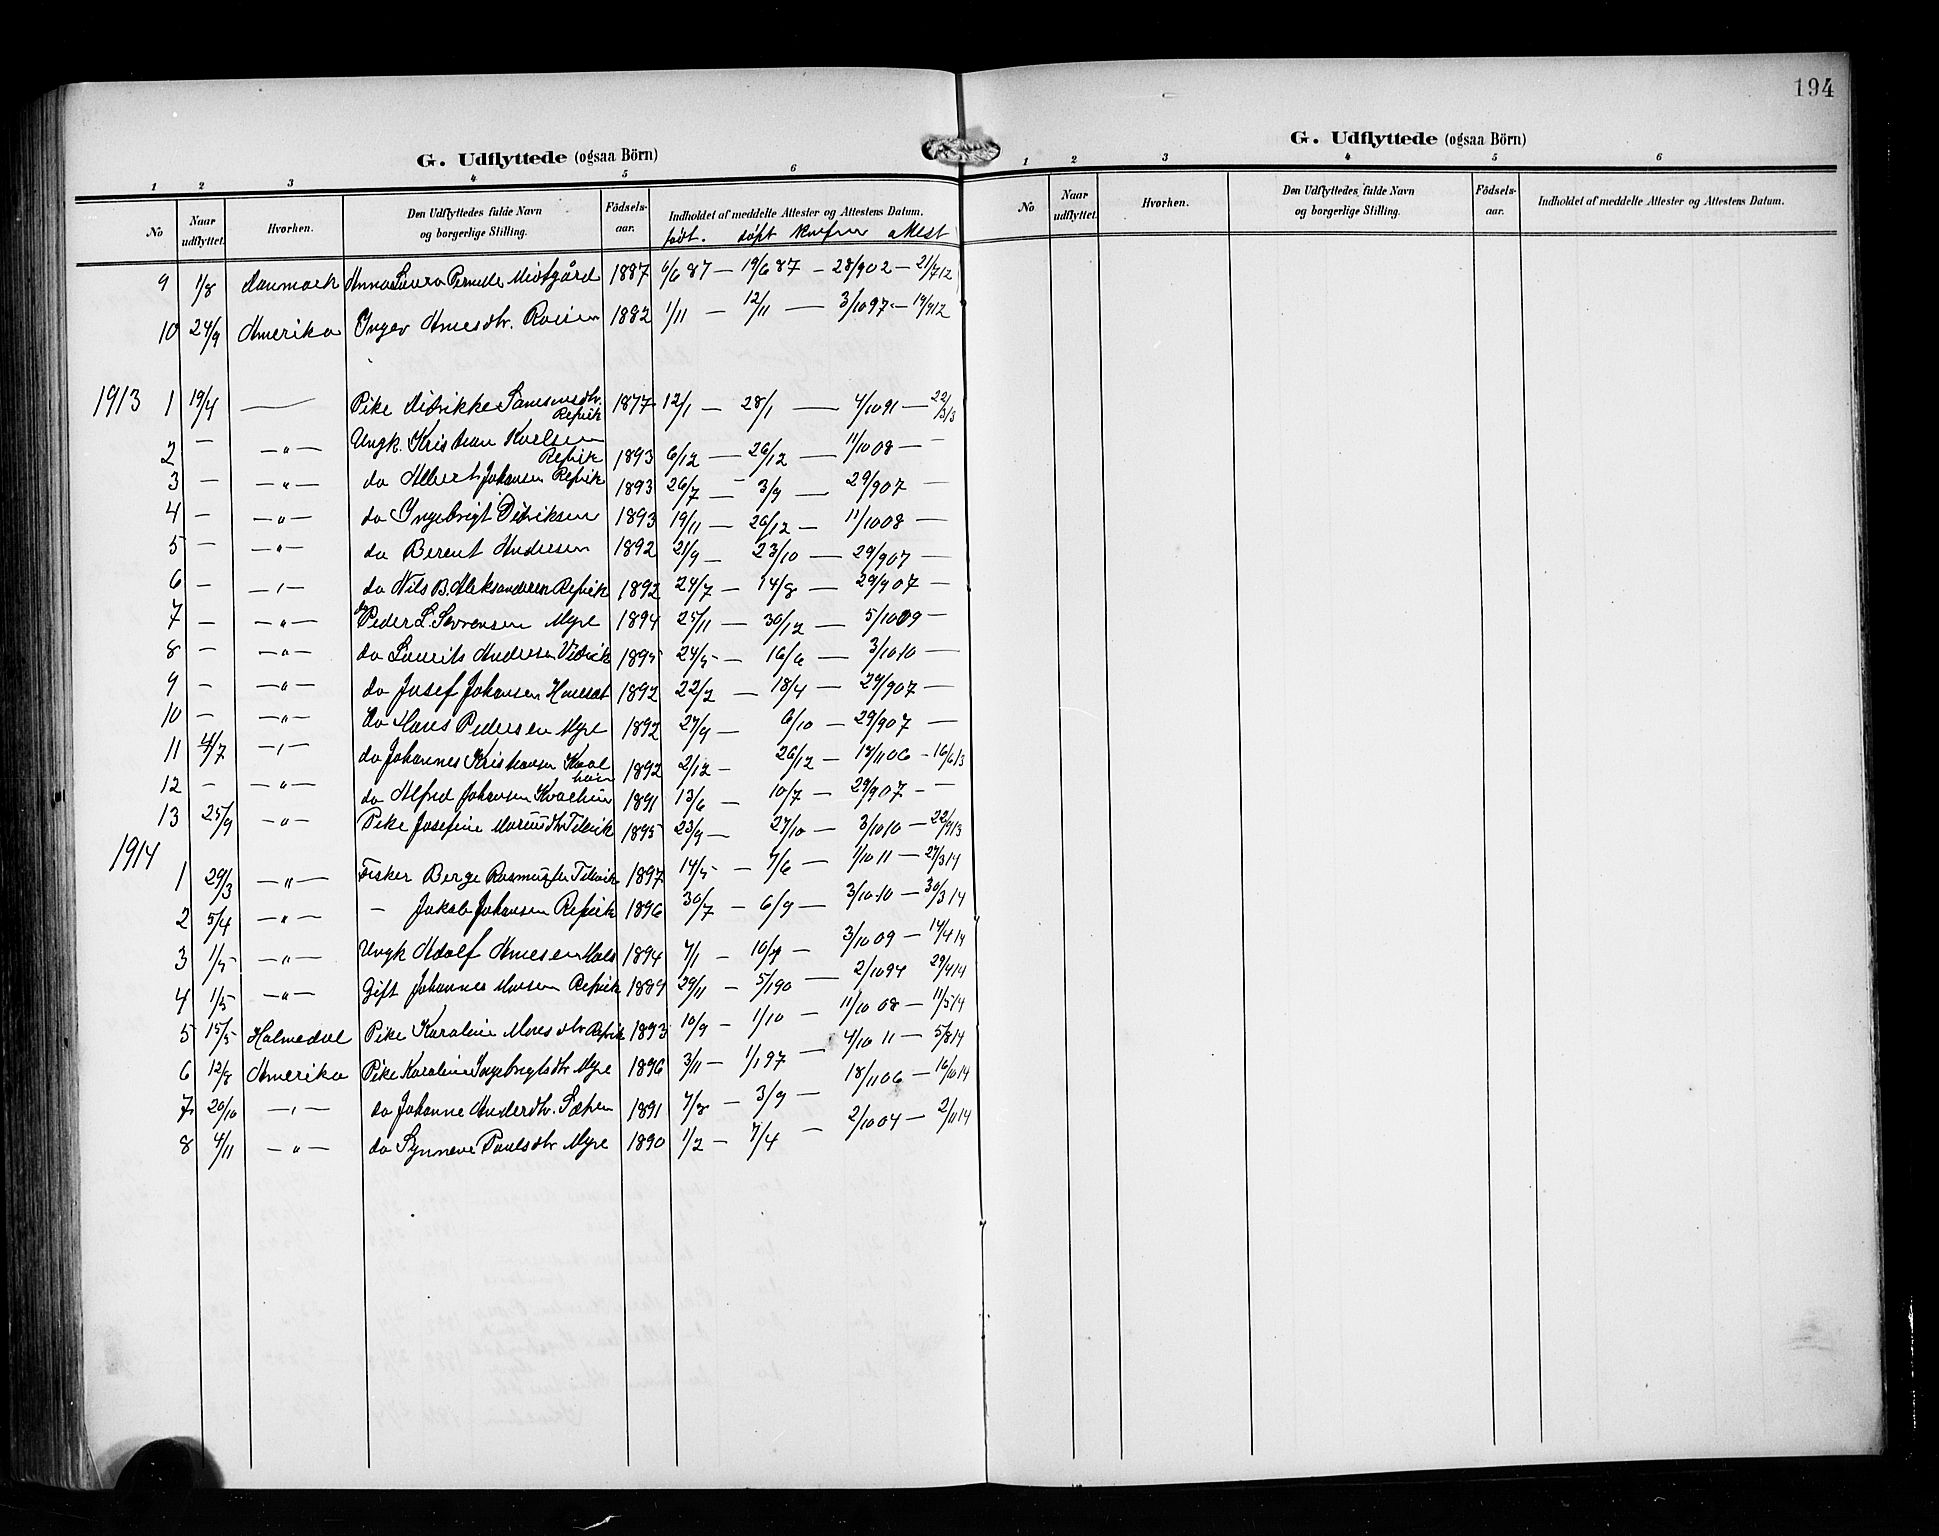 194
G. Udflyttede (ogsaa Börn)
1 2 3 4 5 6
No Naar udflyttet. Hvorhen. Den Udflyttedes fulde Navn og borgerlige Stilling. Födsels-aar. Indholdet af meddelte Attester og Attestens Datum.
födt. döpt Konfirm attest
9 1/8 Danmark Anna Laura Pernille Midtgård 1887 6/6 87 — 19/6 87 — 28/9 02 — 21/7 12
10 24/9 Amerika Inger Arnesdtr. 1882 1/11 — 12/11 — 3/10 97 — 19/9 12
1913 1 19/4 — Pike Didrikke Samsonsdtr. Refvik 1877 12/1 — 28/1 — 4/10 91 — 22/3 13
2 — — " — Ungk. Kristian Karlsen Refvik 1893 6/12 — 26/12 — 11/10 08 — —
3 — — " — do Albert Johansen Refvik 1893 26/7 — 3/9 — 29/9 07 —
4 — — " — do Ingebrigt Didriksen 1893 19/11 — 26/12 — 11/10 08 —
5 — — " — do Berent Andresen 1892 21/9 — 23/10 — 29/9 07 —
6 — — " — do Nils B. Aleksandersen Refvik 1892 24/7 — 14/8 — 29/9 07 —
7 — — " — do Peder L. Sørensen Myre 1894 25/11 — 30/12 — 5/10 09 —
8 — — " — do Laurits Andersen Vedvik 1895 24/5 — 16/6 — 3/10 10 —
9 — — " — do Josef Johansen 1892 22/2 — 18/4 — 29/9 07 —
10 — — " — do Hans Pedersen Myre 1892 27/9 — 6/10 — 29/9 07 —
11 4/7 — " — do Johannes Kristiansen 1892 2/12 — 26/12 — 18/11 06 — 16/6 13
12 — — " — do Alfred Johansen 1891 13/6 — 10/7 — 29/9 07 — —
13 25/9 — " — Pike Josefine 1895 23/9 — 27/10 — 3/10 10 — 22/9 13
1914
1 29/3 — " — Fisker Berge 1897 14/5 — 7/6 — 1/10 11 — 27/3 14
2 5/4 — " — — Jakob Johansen Refvik 1896 30/7 — 6/9 — 3/10 10 — 30/3 14
3 1/5 — " — Ungk Adolf Arnesen 1894 7/1 — — 3/10 09 — 14/4 14
4 1/5 — " — Gift Johannes Monsen Refvik 1889 29/11 — 5/1 90 — 2/10 94 29/4 14
5 15/5 Holmedal Pike Karoline Monsdtr Refvik 1893 10/9 — 1/10 — 11/10 08 — 11/5 14
6 12/8 Amerika Pike Karoline Ingebrigtsdtr Myre 1896 3/11 — 1/1 97 — 4/10 11 — 5/8 14
7 20/10 — " — do Johanne Andersdtr. 1891 7/8 — 3/9 — 18/11 06 — 16/10 14
8 4/11 — " — do Synneve Paulsdtr Myre 1890 1/2 — 7/4 — 2/10 04 — 2/11 14
G. Udflyttede (ogsaa Börn)
1 2 3 4 5 6
No Naar udflyttet. Hvorhen. Den Udflyttedes fulde Navn og borgerlige Stilling. Födsels-aar. Indholdet af meddelte Attester og Attestens Datum.